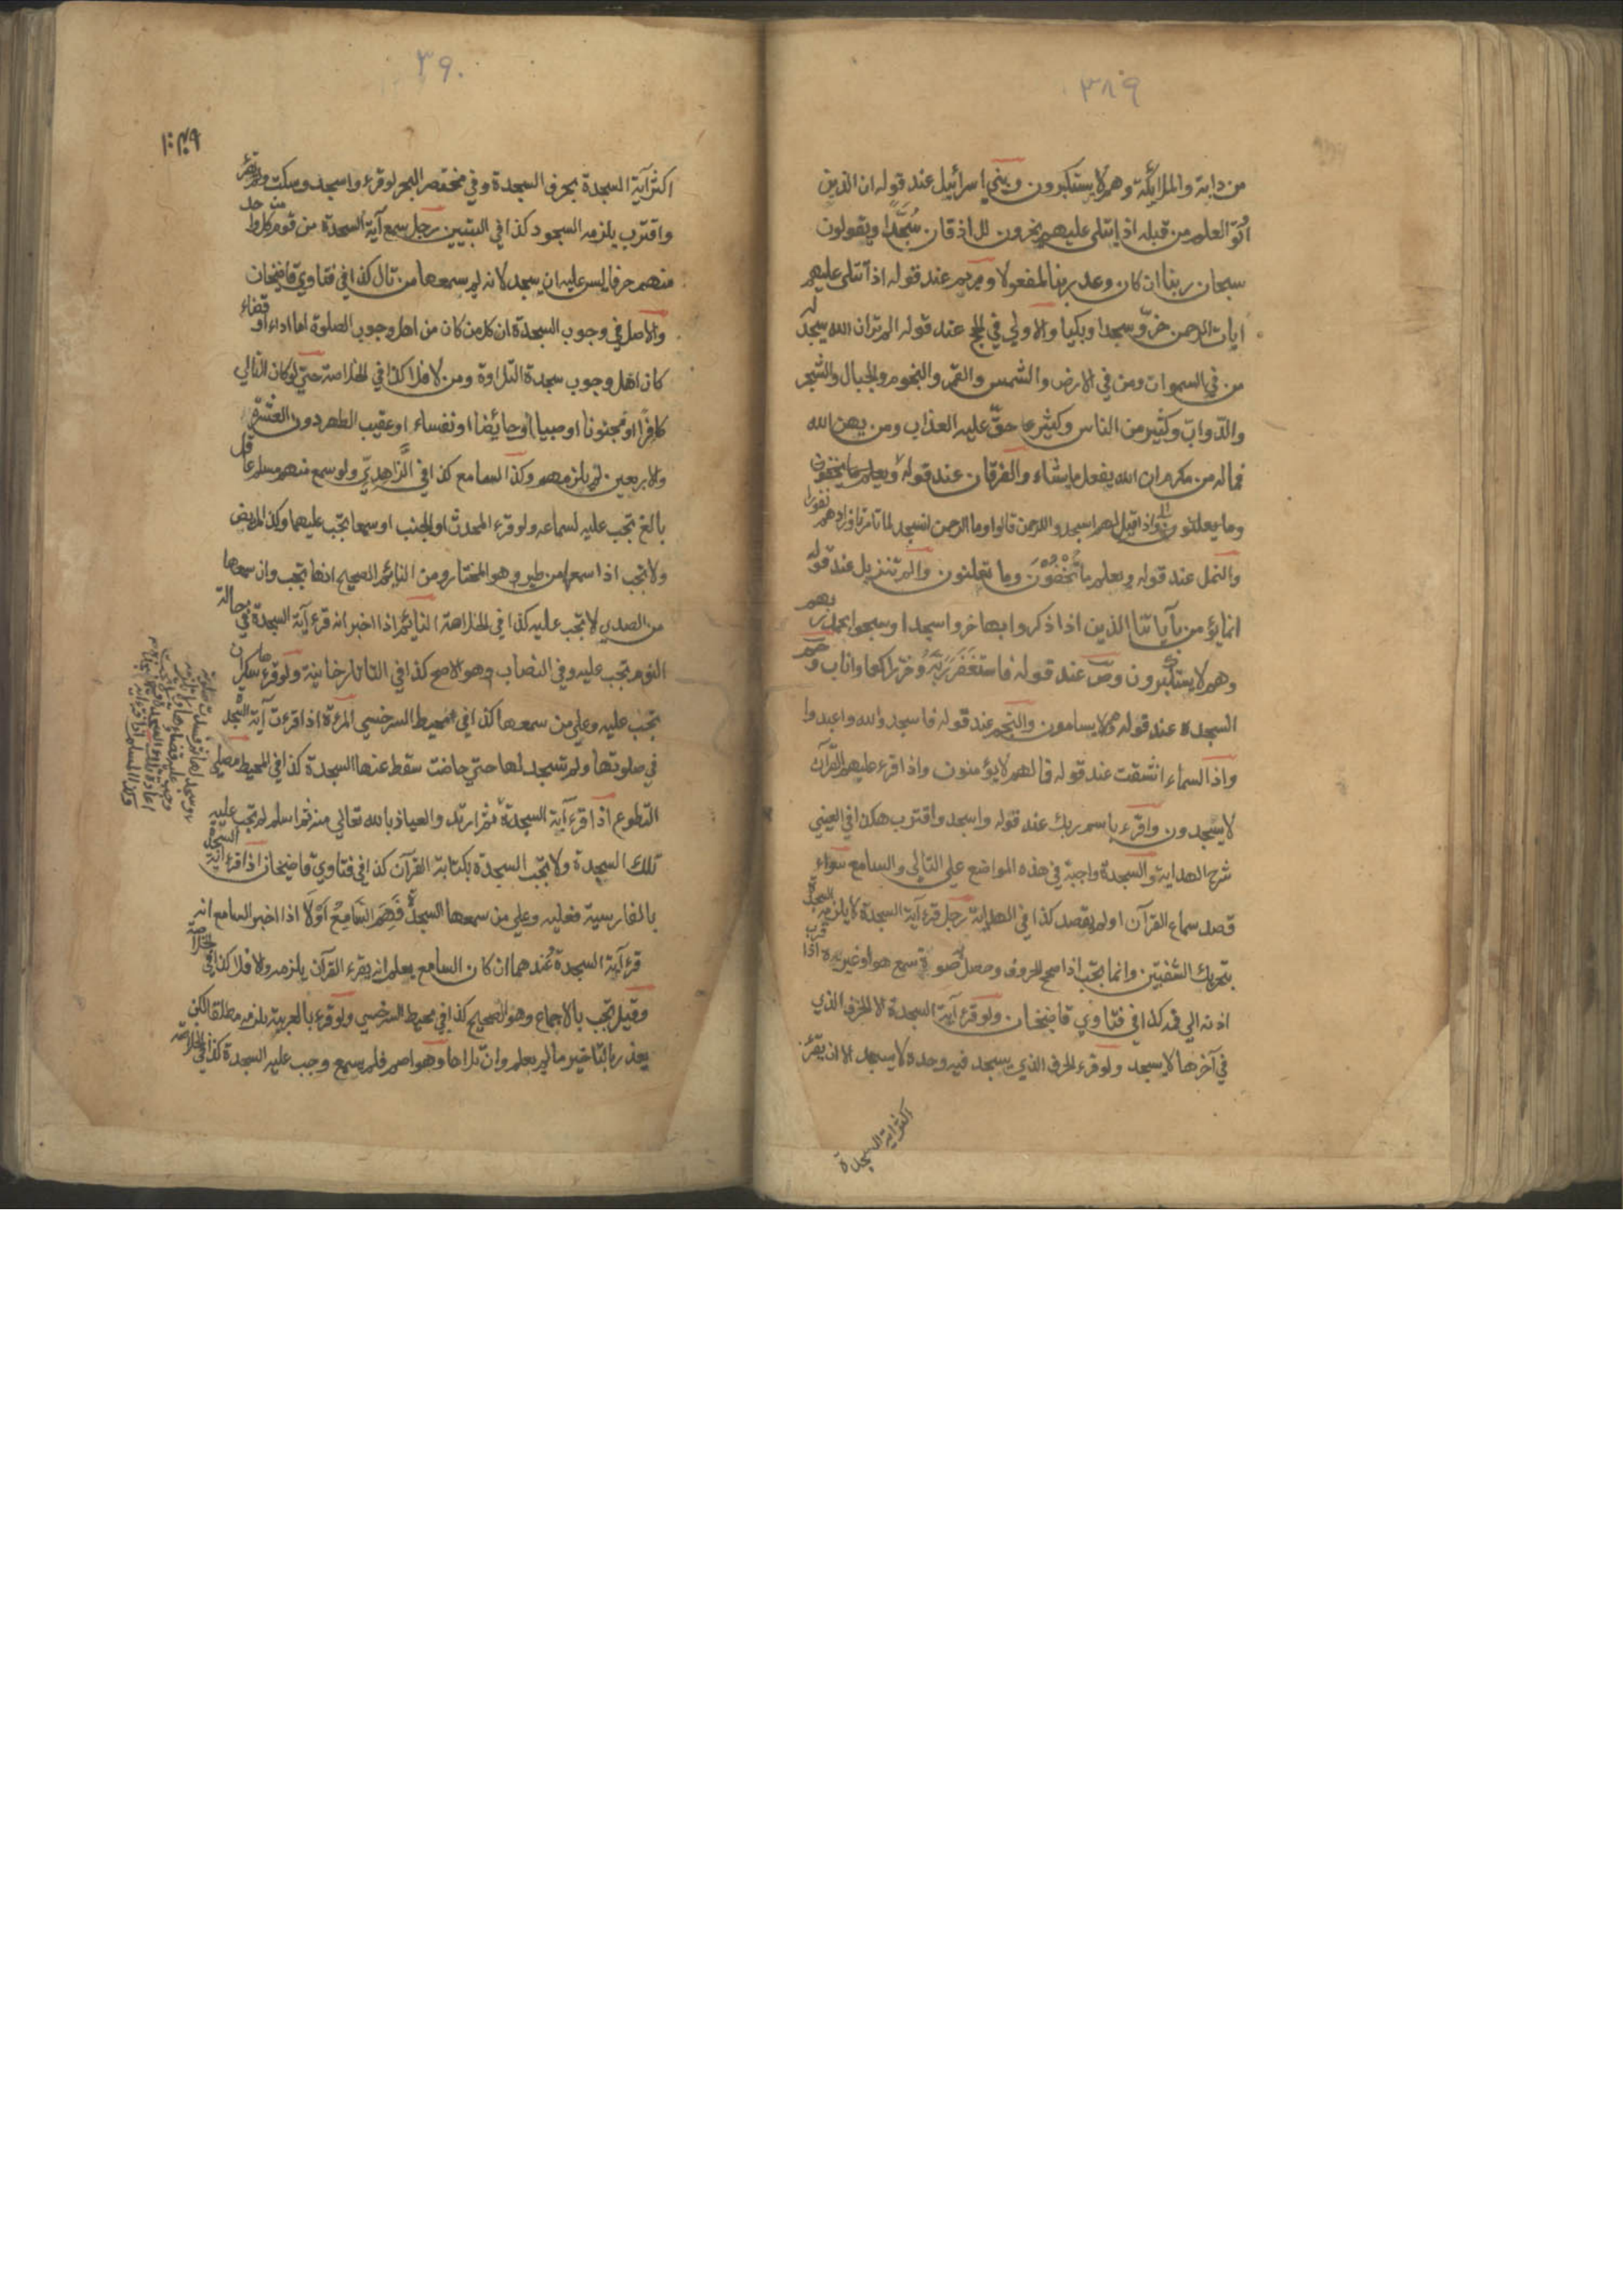 ٣٨٩
من دابة والملائكة وهم لا يستكبرون وبني اسرائيل عند قوله ان الذين
اوتوا العلم من قبله اذا يتلى عليهم يخرون للاذقان سُجَّدًا ويقولون
سبحان ربنا ان كان وعد ربنا لمفعولا ومريم عند قوله اذا تتلى عليهم
ايات الرحمن خرّو سجدا وبكيا والاولي في الحج عند قوله الم تر ان الله يسجد له
من في السموات ومن في الارض والشمس والقمر والنجوم والجبال والشجر
والدّوابّ وكثير من الناس وكثير حقّ عليه العذاب ومن يهن الله
فما له من مكرم ان الله يفعل ما يشاء والفرقان عند قوله ويعلم ما يخفون
وما يعلنون واذا قيل لهم اسجدو للرحمن قالوا وما الرحمن انسجد لما تامرنا وزادهم نفورا
والنمل عند قوله ويعلم ما تُخْفُوْنَ وما تعلنون والم تنزيل عند قوله
انما يؤمن بآياتنا الذين اذا ذكروا بها خروا سجدا وسبحوا بحمد ربهم
وهم لا يستكبرون وصّ عند قوله فاستغفر ربّهُ وخرّ راكعا واناب وحم
السجدة عند قوله وهم لا يسامون والنجم عند قوله فاسجدو لله واعبدوا
واذا السماء انشقت عند قوله فما لهم لا يؤمنون واذا قرء عليهم القرآن
لا يسجدون واقرء باسم ربك عند قوله واسجد واقترب هكذا في العيني
شرح الهداية والسجدة واجبة في هذه المواضع علي التالي والسامع سواء
قصد سماع القرآن او لم يقصد كذا في الهداية رجل قرء آية السجدة لا يلزمه السجدة
بتحريك الشفتين وانما تجب اذا صحح الحروف وحصل صوة سمع هو او غيره اذا قرب
اذنه الي فمه كذا في فتاوي قاضيخان ولو قرء آية السجدة الا الحرف الذي
في آخرها لا يسجد ولو قرء الحرف الذي يسجد فيه وحده لا يسجد الا ان يقرء
اكثر آية السجدة
٣٩٠
اكثر آية السجدة بحرف السجدة وفي مختصر البحر لو قرء واسجد وسكت ولم يقرء
واقترب يلزمه السجود كذا في التبيين رجل سمع آية السجدة من قوم من كل واحد
منهم حرفا ليس عليه ان يسجد لانه لم يسمعها من تال كذا في فتاوي قاضيخان
والاصل في وجوب السجدة ان كل من كان من اهل وجوب الصلوة اما اداء او قضاء
كان اهل وجوب سجدة التلاوة ومن لا فلا كذا في الخلاصة حتي لو كان التالي
كافرًا او مجنونا او صبيا او حائضا او نفساء او عقيب الطهر دون العشرة
والاربعين لم يلزمهم وكذا السامع كذا في الزّاهديّ ولو سمع منهم مسلم عاقل
بالغ تجب عليه لسماعه ولو قرء المحدث او الجنب او سمعا تجب عليهما وكذا المريض
ولا تجب اذا سمعها من طير وهو المختار ومن النائم الصحيح انها تجب وان سمعها
من الصدي لا تجب عليه كذا في الخلاصة النائم اذا اخبر انه قرء آية السجدة في حالة
النوم تجب عليه وفي النصاب وهو الاصح كذا في التاتارخانية ولو قرء سكران
تجب عليه وعلي من سمعها كذا في محيط السرخسي المرءة اذا قرءت آية السجدة
في صلوتها ولم تسجد لها حتي حاضت سقط عنها السجدة كذا في المحيط مصلي
التطوع اذا قرء آية السجدة ثم ارتد والعياذ بالله تعالي منه ثم اسلم لم تجب عليه
تلك السجدة ولا تجب السجدة بكتابة القرآن كذا في فتاوي قاضيخان اذا قرء آية السجدة
بالفارسية فعليه وعلي من سمعها السجدة فَهِمَ السَّامِعُ اَوْلَا اذا اخبر السامع انه
قرء آية السجدة عندهما ان كان السامع يعلم انه يقرء القرآن يلزمه والا فلا كذا في الخلاصة
وقيل تجب بالاجماع وهو الصحيح كذا في محيط السرخسي ولو قرء بالعربية يلزمه مطلقا لكن
يعذر بالتاخير ما لم يعلم وان تلاها وهو اصم فلم يسمع وجب عليه السجدة كذا في الخلاصة